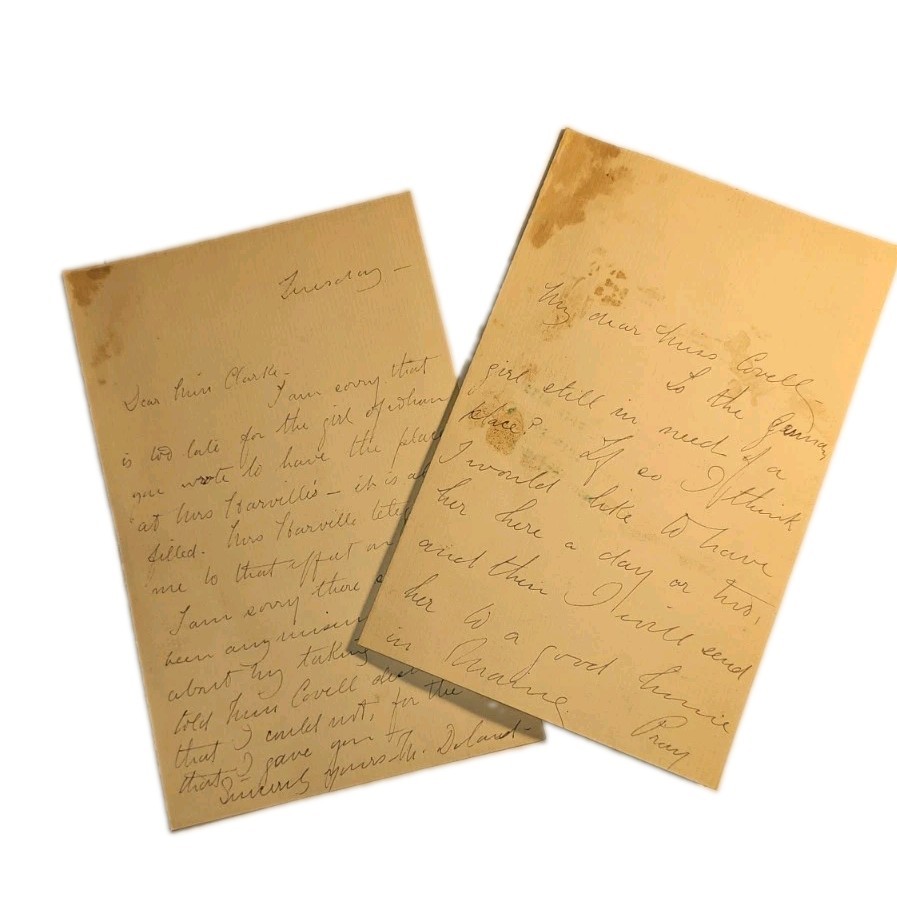 Tuesday —
Dear Miss Clarke.
I am sorry that
is too late for the girl of whom
you wrote to have the place
at Mrs Harville's — it is al
filled. Mrs Harville tele
me to that effect on
I am sorry there
been any misun
about my taking
told Miss Covell
that I could not, for the
that I gave you
Sincerely yours — M. Deland —
My dear Miss Covell —
Is the German
girl still in need of a
place? If so I think
I would like to have
her here a day or two,
and then I will send
her to a good home
in Maine.
Pray